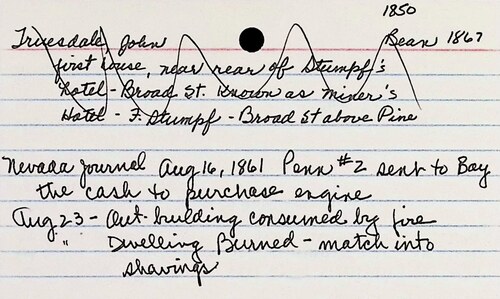 1850
Truesdale, John Bean 1867
first house, near rear of Stumpf's
Hotel - Broad St. Known as Miner's
Hotel - F. Stumpf - Broad St above Pine
Nevada Journal Aug 16, 1861 Penn #2 sent to Bay
the cash to purchase engine
Aug 23 - Out-building consumed by fire
" Dwelling Burned - match into
shavings